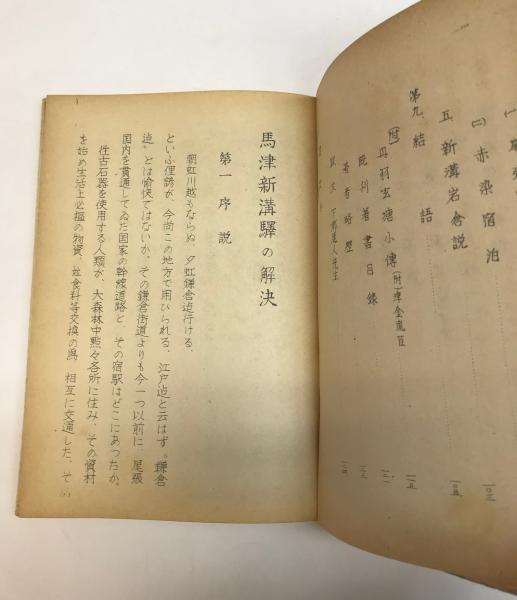 (一)
(二) 赤染宿泊
一〇三
五、新溝岩倉説
一〇五
第九、結語
一一五
(附) 丹羽玄塘小傳
既刊著書目録
著者略歴
一二四
馬津新溝驛の解決
第一 序説
朝虹川越もならぬ 夕虹鎌倉迄行ける
といふ俚謡が、今尚この地方で用ひられる、江戸迄と云はず、鎌倉
迄、とは愉快ではないか、その鎌倉街道よりも今一つ以前に 尾張
国内を貫通してゐた国家の幹線道路と、その宿駅はどこにあつたか。
往古石器を使用する人類が、大森林中點々各所に住み、その資材
を始め生活上必樞の物資、並食料等交換の為 相互に交通した、そ
(1)